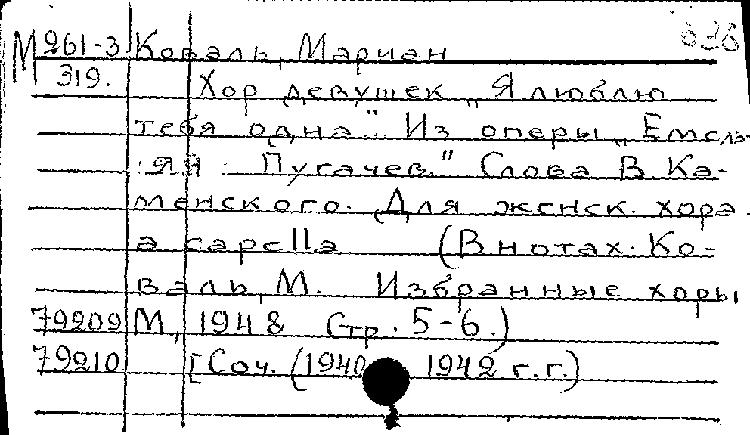 М 261-3 Коваль, Мариан
319. Хор девушек „Я люблю
тебя одна". Из оперы „Емель-
ян Пугачев." Слова В. Ка-
менского. Для женск. хора
a capella (В нотах: Ко-
валь, М. Избранные хоры
79209 М., 1948 Стр. 5-6.)
79210 [Соч. (1940 1942 г.г.)